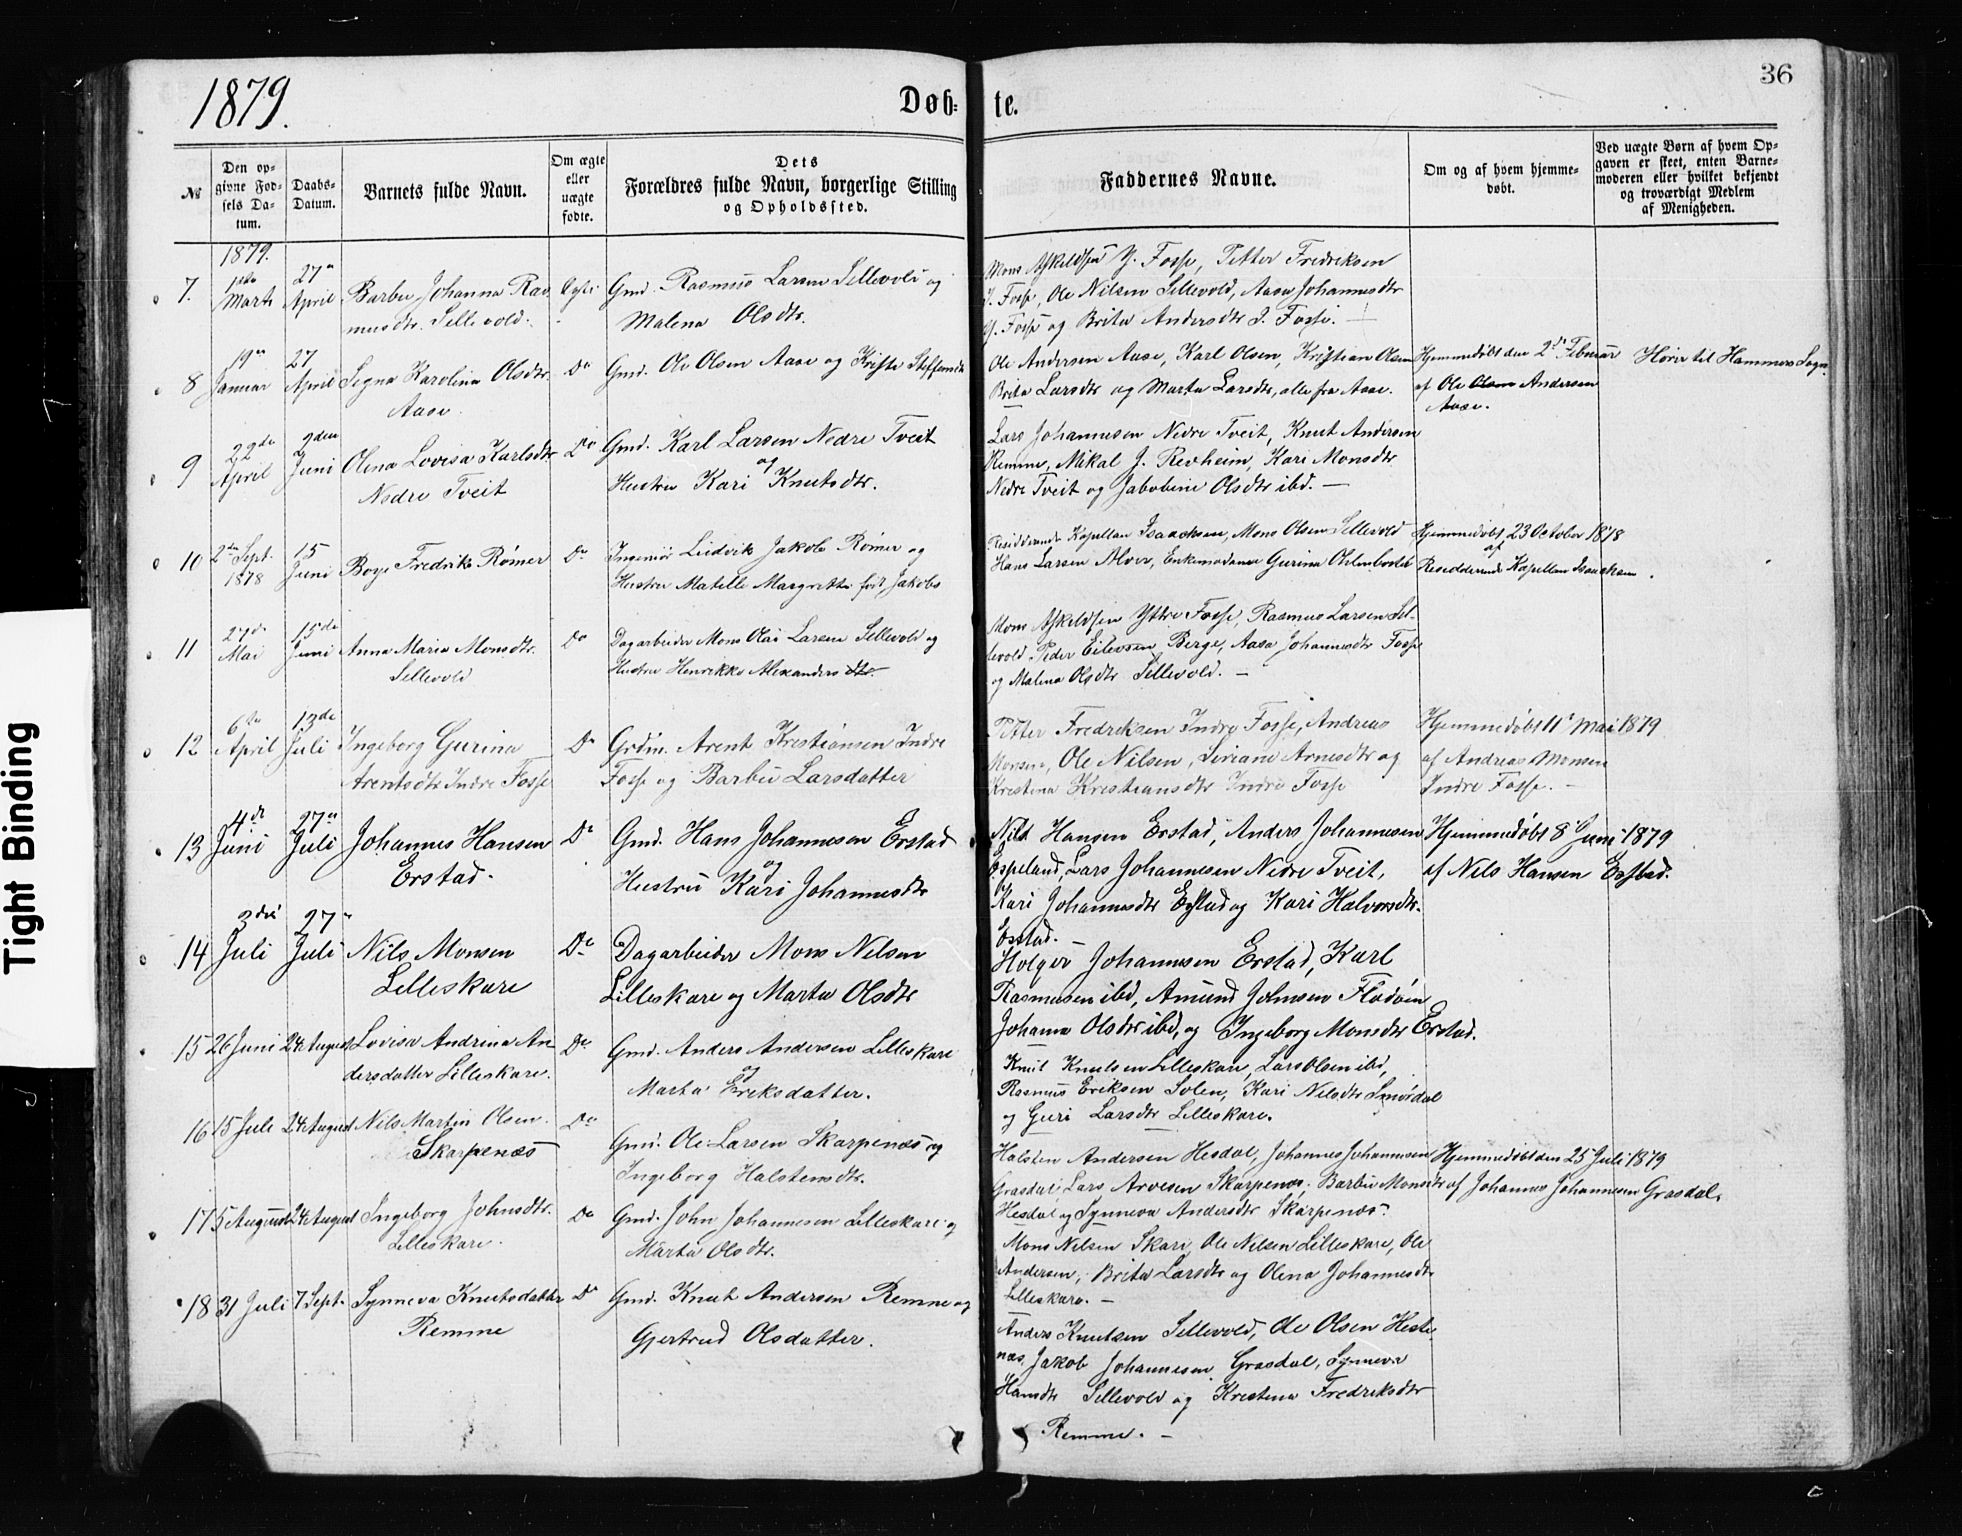 36
1879.
Døb-
te.
№
Den op-
givne Fød-
sels Da-
tum.
Daabs-
Datum.
Barnets fulde Navn.
Om ægte
eller
uægte
fødte.
Dets
Forældres fulde Navn, borgerlige Stilling
og Opholdssted.
Faddernes Navne.
Om og af hvem hjemme-
døbt.
Ved uægte Børn af hvem Op-
gaven er skeet, enten Barne-
moderen eller hvilket bekjendt
og troværdigt Medlem
af Menigheden.
1879.
7.
1ste
Marts
27n
April
Barbu Johanna Ras
musdtr. Sellevold.
Egte
Gmd. Rasmus Larsen Sellevold og
Malena Olsdtr.
Mons Askeldsen Y. Fosse, Petter Fredriksen
I. Fosse, Ole Nilsen Sellevold, Aasa Johannesdtr
Y. Fosse og Brita Andersdtr I. Fosse. —
8
19n
Januar
27
April
Segna Karolina Olsdtr.
Aase.
Do
Gmd. Ole Olsen Aase og Krista Steffensdtr
Ole Andersen Aase, Karl Olsen, Kristian Olsen
Brita Larsdtr og Marta Larsdtr, alle fra Aase.
Hjemmedøbt den 2de Februar
af Ole Olsen Andersen
Aase.
Hører til Hammers Sogn.
9
22de
April
2den
Juni
Olina Lovisa Karlsdtr
Nedre Tveit
Do
Gmd. Karl Larsen Nedre Tveit
og
Hustru Kari Knutsdtr.
Lars Johannesen Nedre Tveit, Knut Andersen
Remme, Mikal J. Revheim, Kari Monsdtr
Nedre Tveit og Jabobine Olsdtr ibd. —
10
2den Sept.
1878
15
Juni
Boye Fredrik Rømer
Do
Ingeniør Ludvik Jakob Rømer og
Hustru Matelle Margrette født Jakobs
Residderende Kapellan Isaacksen, Mons Olsen Sellevold
Hans Larsen Alver, Enkemadame Gurina
Hjemmedøbt 23 October 1878
af
Residderende Kapellan Isaacksen
11
27de
Mai
15de
Juni
Anna Maria Monsdtr.
Sellevold
Do
Dagarbeider Mons Olai Larsen Sellevold og
Hustru Henrikke Alexanders dtr.
Mons Askeldsen Yttre Fosse, Rasmus Larsen Sel-
levold, Peder Eilevsen Berge, Aasa Johannesdtr Fosse
og Malena Olsdtr Sellevold. —
12
6te
April
13de
Juli
Ingeborg Gurina
Arentsdtr Indre Fosse
Do
Grdm. Arent Krestiansen Indre
Fosse og Barbu Larsdatter
Petter Fredriksen Indre Fosse, Andreas
Monsen, Ole Nilsen, Siviane Arnesdtr og
Krestina Krestiansdtr Indre Fosse
Hjemmedøbt 11te Mai 1879
af Andreas Monsen
Indre Fosse. —
13
4de
Juni
27n
Juli
Johannes Hansen
Erstad.
Do
Gmd. Hans Johannesen Erstad
og
Hustru Kari Johannesdtr
Nils Hansen Erstad, Anders Johannesen
Espeland, Lars Johannesen Nedre Tveit,
Kari Johannesdtr Erstad og Kari Halvorsdtr.
Erstad. —
Hjemmedøbt 8 Juni 1879
af Nils Hansen Erstad.
14
3die
Juli
27n
Juli
Nils Monsen
Lilleskare
Do
Dagarbeider Mons Nilsen
Lilleskare og Marta Olsdtr
Holger Johannesen Erstad, Karl
Rasmusen ibd, Amund Johnsen Flodøen
Johanna Olsdtr ibd, og Ingeborg Monsdtr Erstad.
15
26 Juni
24 August
Lovisa Andrina An-
dersdatter Lilleskare.
Do
Gmd. Anders Andersen Lilleskare
og
Marta Eriksdatter.
Knut Knutsen Lilleskare, Lars Olsen ibd,
Rasmus Eriksen Solen, Kari Nilsdtr Smørdal
og Guri Larsdtr Lilleskare.
16
15 Juli
24 August
Nils Martin Olsen
Skarpenæs
Do
Gmd. Ole Larsen Skarpenæs og
Ingeborg Halstensdtr.
Halsten Andersen Hesdal, Johannes Johannesen
Grasdal, Lars Arvesen Skarpenæs, Barbu Monsdtr
Hesdal og Synneva Andersdtr Skarpenæs.
Hjemmedøbt den 25 Juli 1879
af Johannes Johannesen Grasdal.
17
5 August
24 August
Ingeborg Johnsdtr.
Lilleskare.
Do
Gmd. John Johannesen Lilleskare og
Marta Olsdtr.
Mons Nilsen Skare, Ole Nilsen Lilleskare, Ole
Andersen, Brita Larsdtr og Olena Johannesdtr
Lilleskare. —
18
31 Juli
7 Sept.
Synneva Knutsdatter
Remme
Do
Gmd. Knut Andersen Remme og
Gjertrud Olsdatter.
Anders Knutsen Sellevold, Ole Olsen Heste-
næs, Jakob Johannesen Grasdal, Synneva
Hansdtr Sellevold og Krestina Fredriksdtr
Remme. —
Tight Binding